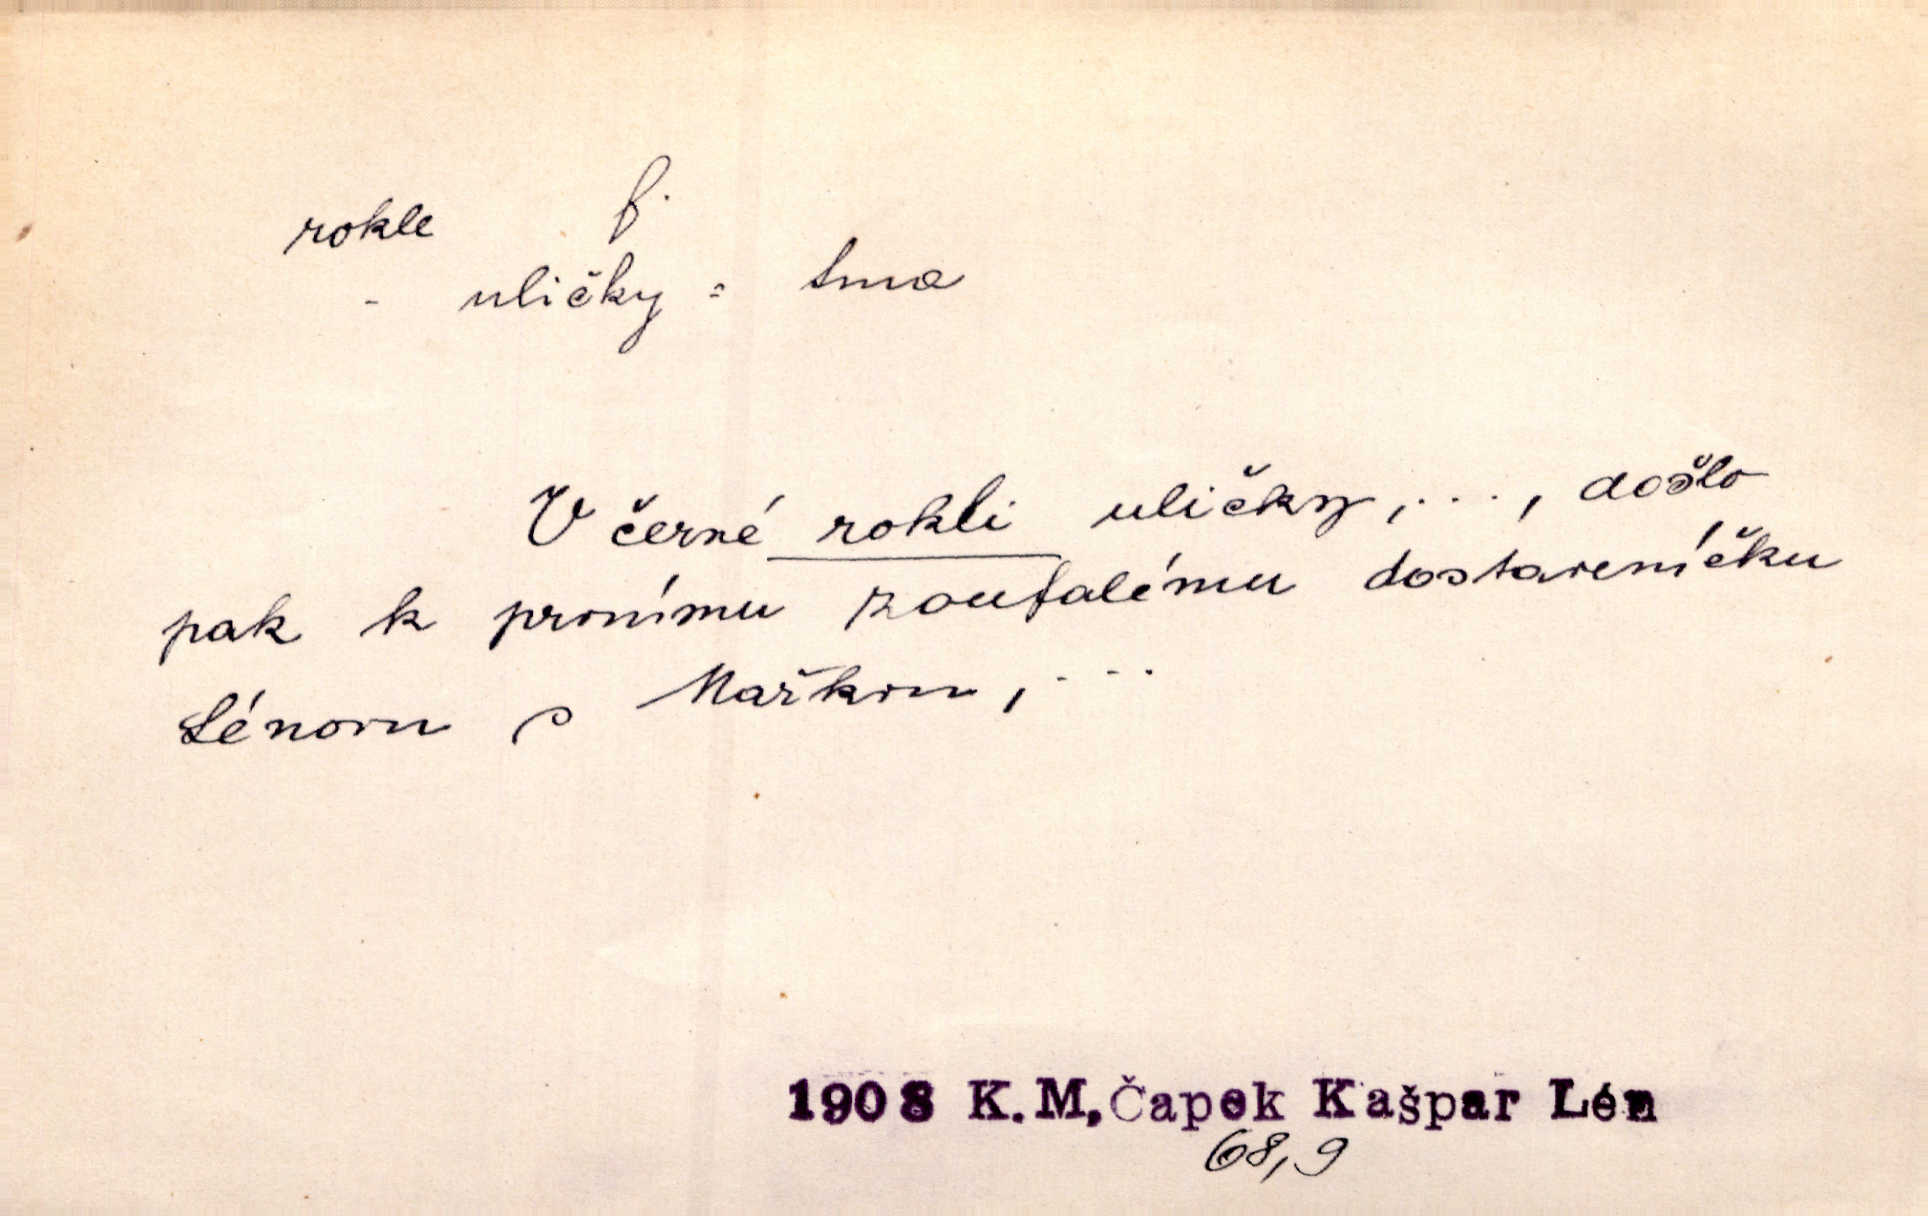 rokle f.
- uličky = tma
V černé rokli uličky, ..., došlo
pak k prvnímu zoufalému dostaveníčku
Lénovu s Mařkou, ...
1908 K.M.Čapek Kašpar Lén
68,9